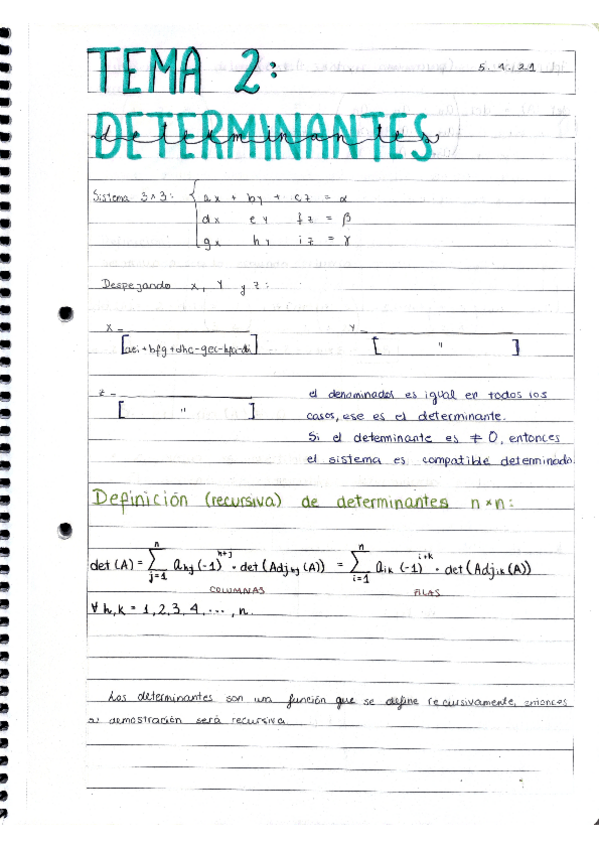 TEMA 2:
5. 4. 21
DETERMINANTES
determinantes
Sistema 3x3: { ax + by + cz = α
dx ey fz = β
gx hy iz = γ
Despejando x, Y y z:
X = ____
[aei+bfg+dhc-gec-hfa-dbi]
Y = ____
[ " ]
z = ____
[ " ]
el denominador es igual en todos los
casos, ese es el determinante.
Si el determinante es ≠ 0, entonces
el sistema es compatible determinado.
Definición (recursiva) de determinantes n×n:
det (A) = ∑_{j=1}^{n} a_{hj} (-1)^{h+j} · det (Adj_{hj} (A)) = ∑_{i=1}^{n} a_{ik} (-1)^{i+k} · det (Adj_{ik} (A))
COLUMNAS FILAS
∀ h, k = 1, 2, 3, 4, ..., n.
Los determinantes son una función que se define recursivamente, entonces
su demostración será recursiva